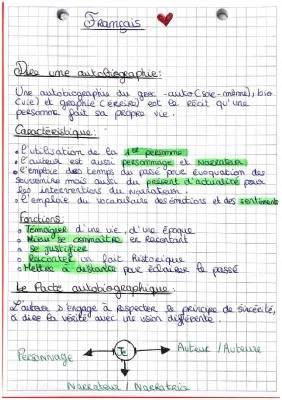 Français
Dire une autobiographie:
Une autobiographie du grec -auto(soie-même), bio
(vie) et graphie (écrire) est le récit qu'une
personne fait sa propre vie.
Caractéristique:
• l'utilisation de la 1ere personne
• l'auteur est aussi personnage et narrateur
• l'emploie des temps du passé pour évoquation des
souvenirs mais aussi du présent d'actualité pour
les interventions du narrateur.
• l'emploie du vocabulaire des émotions et des sentiments
Fonctions:
Témoigner d'une vie, d'une époque
Mieux se connaître en racontant
se justifier
Raconter un fait historique
Mettre à distance pour éclairer le passé
Le Pacte autobiographique:
L'auteur s'engage à respecter le principe de sincérité,
à dire la vérité avec une vision différente.
Personnage
Je
Auteur / Auteure
Narrateur / Narratrice